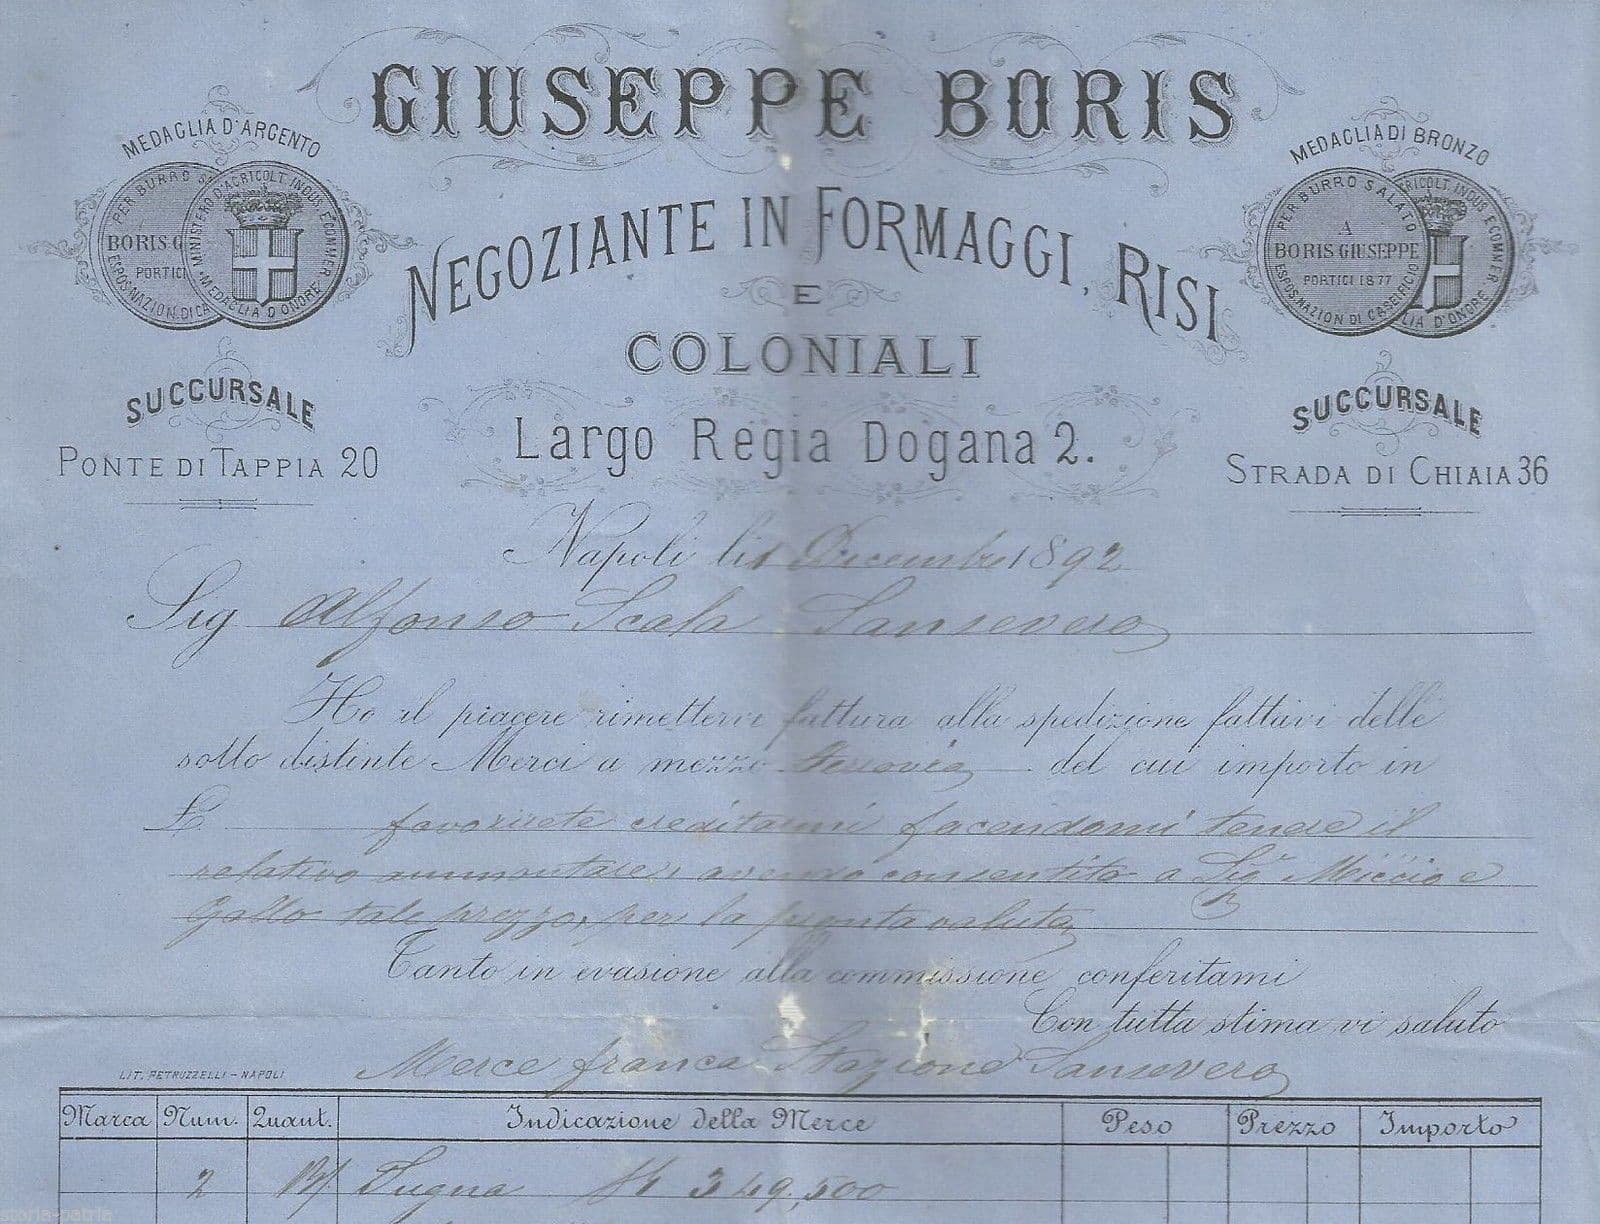 GIUSEPPE BORIS
MEDAGLIA D'ARGENTO
PER BURRO
BORIS G
PORTICI
ESPOS.NAZION.DI CA
MINISTERO D'AGRICOLT. INDUS. E COMMER.
MEDAGLIA D'ONORE
MEDAGLIA DI BRONZO
PER BURRO SALATO
A
BORIS GIUSEPPE
PORTICI 1877
ESPOS.NAZION DI CASEIFICIO
RICOLT. INDUS E COMMER.
LIA D'ONORE
NEGOZIANTE IN FORMAGGI, RISI
E
COLONIALI
SUCCURSALE
PONTE DI TAPPIA 20
Largo Regia Dogana 2.
SUCCURSALE
STRADA DI CHIAIA 36
Napoli li 1 Dicembre 1892
Sig Alfonso Scala Sansevero
Ho il piacere rimettervi fattura alla spedizione fattavi delle
sotto distinte Merci a mezzo ferrovia del cui importo in
£. favorirete creditarmi facendomi tenere il
relativo ammontare, avendo consentito a Sigr Miccio e
Gallo tale prezzo, per la pronta valuta
Tanto in evasione alla commissione conferitami
Con tutta stima vi saluto
Merce franca Stazione Sansevero
LIT. PETRUZZELLI - NAPOLI
Marca Num. Quant. Indicazione della Merce Peso Prezzo Importo
2 Sugna 349,500
storia-patria